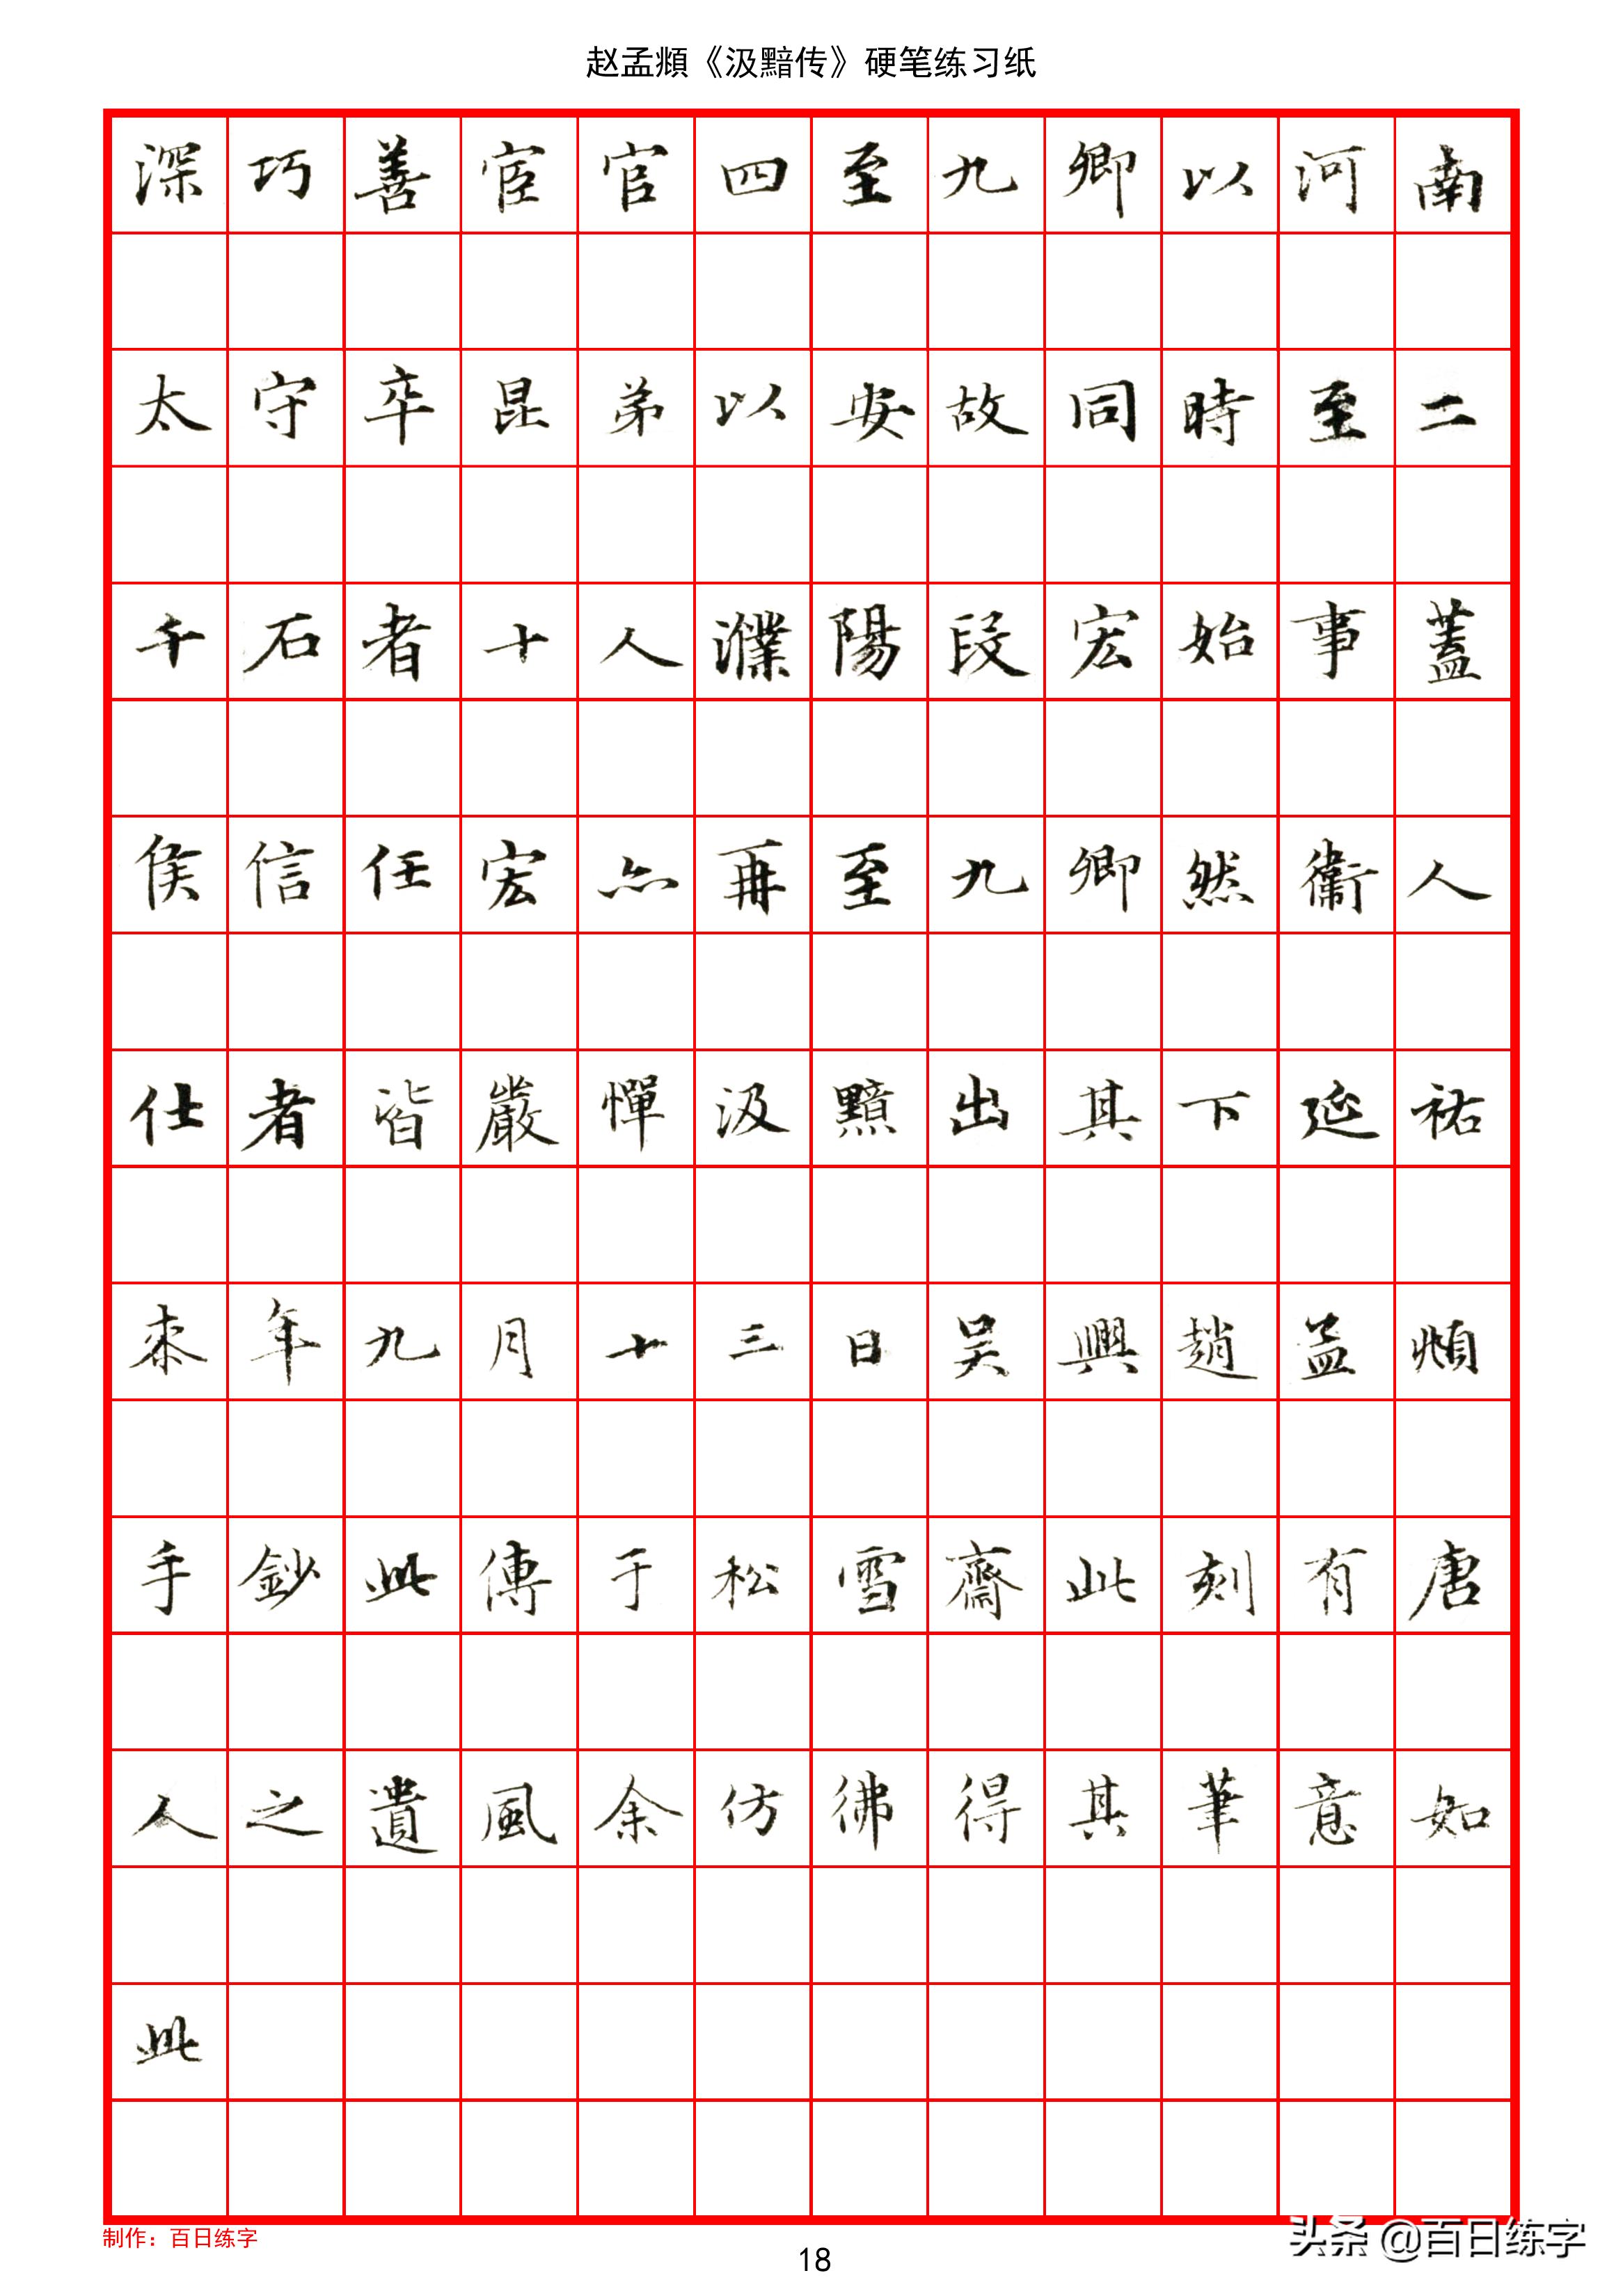 赵孟頫《汲黯传》硬笔练习纸
深巧善宦官四至九卿以河南
太守卒昆弟以安故同時至二
千石者十人濮陽段宏始事蓋
侯信任宏亦再至九卿然衞人
仕者皆嚴憚汲黯出其下延祐
来年九月十三日吴興趙孟頫
手鈔此傳于松雪齋此刻有唐
人之遺風余仿彿得其筆意如
此
制作：百日练字
18
头条 @百日练字